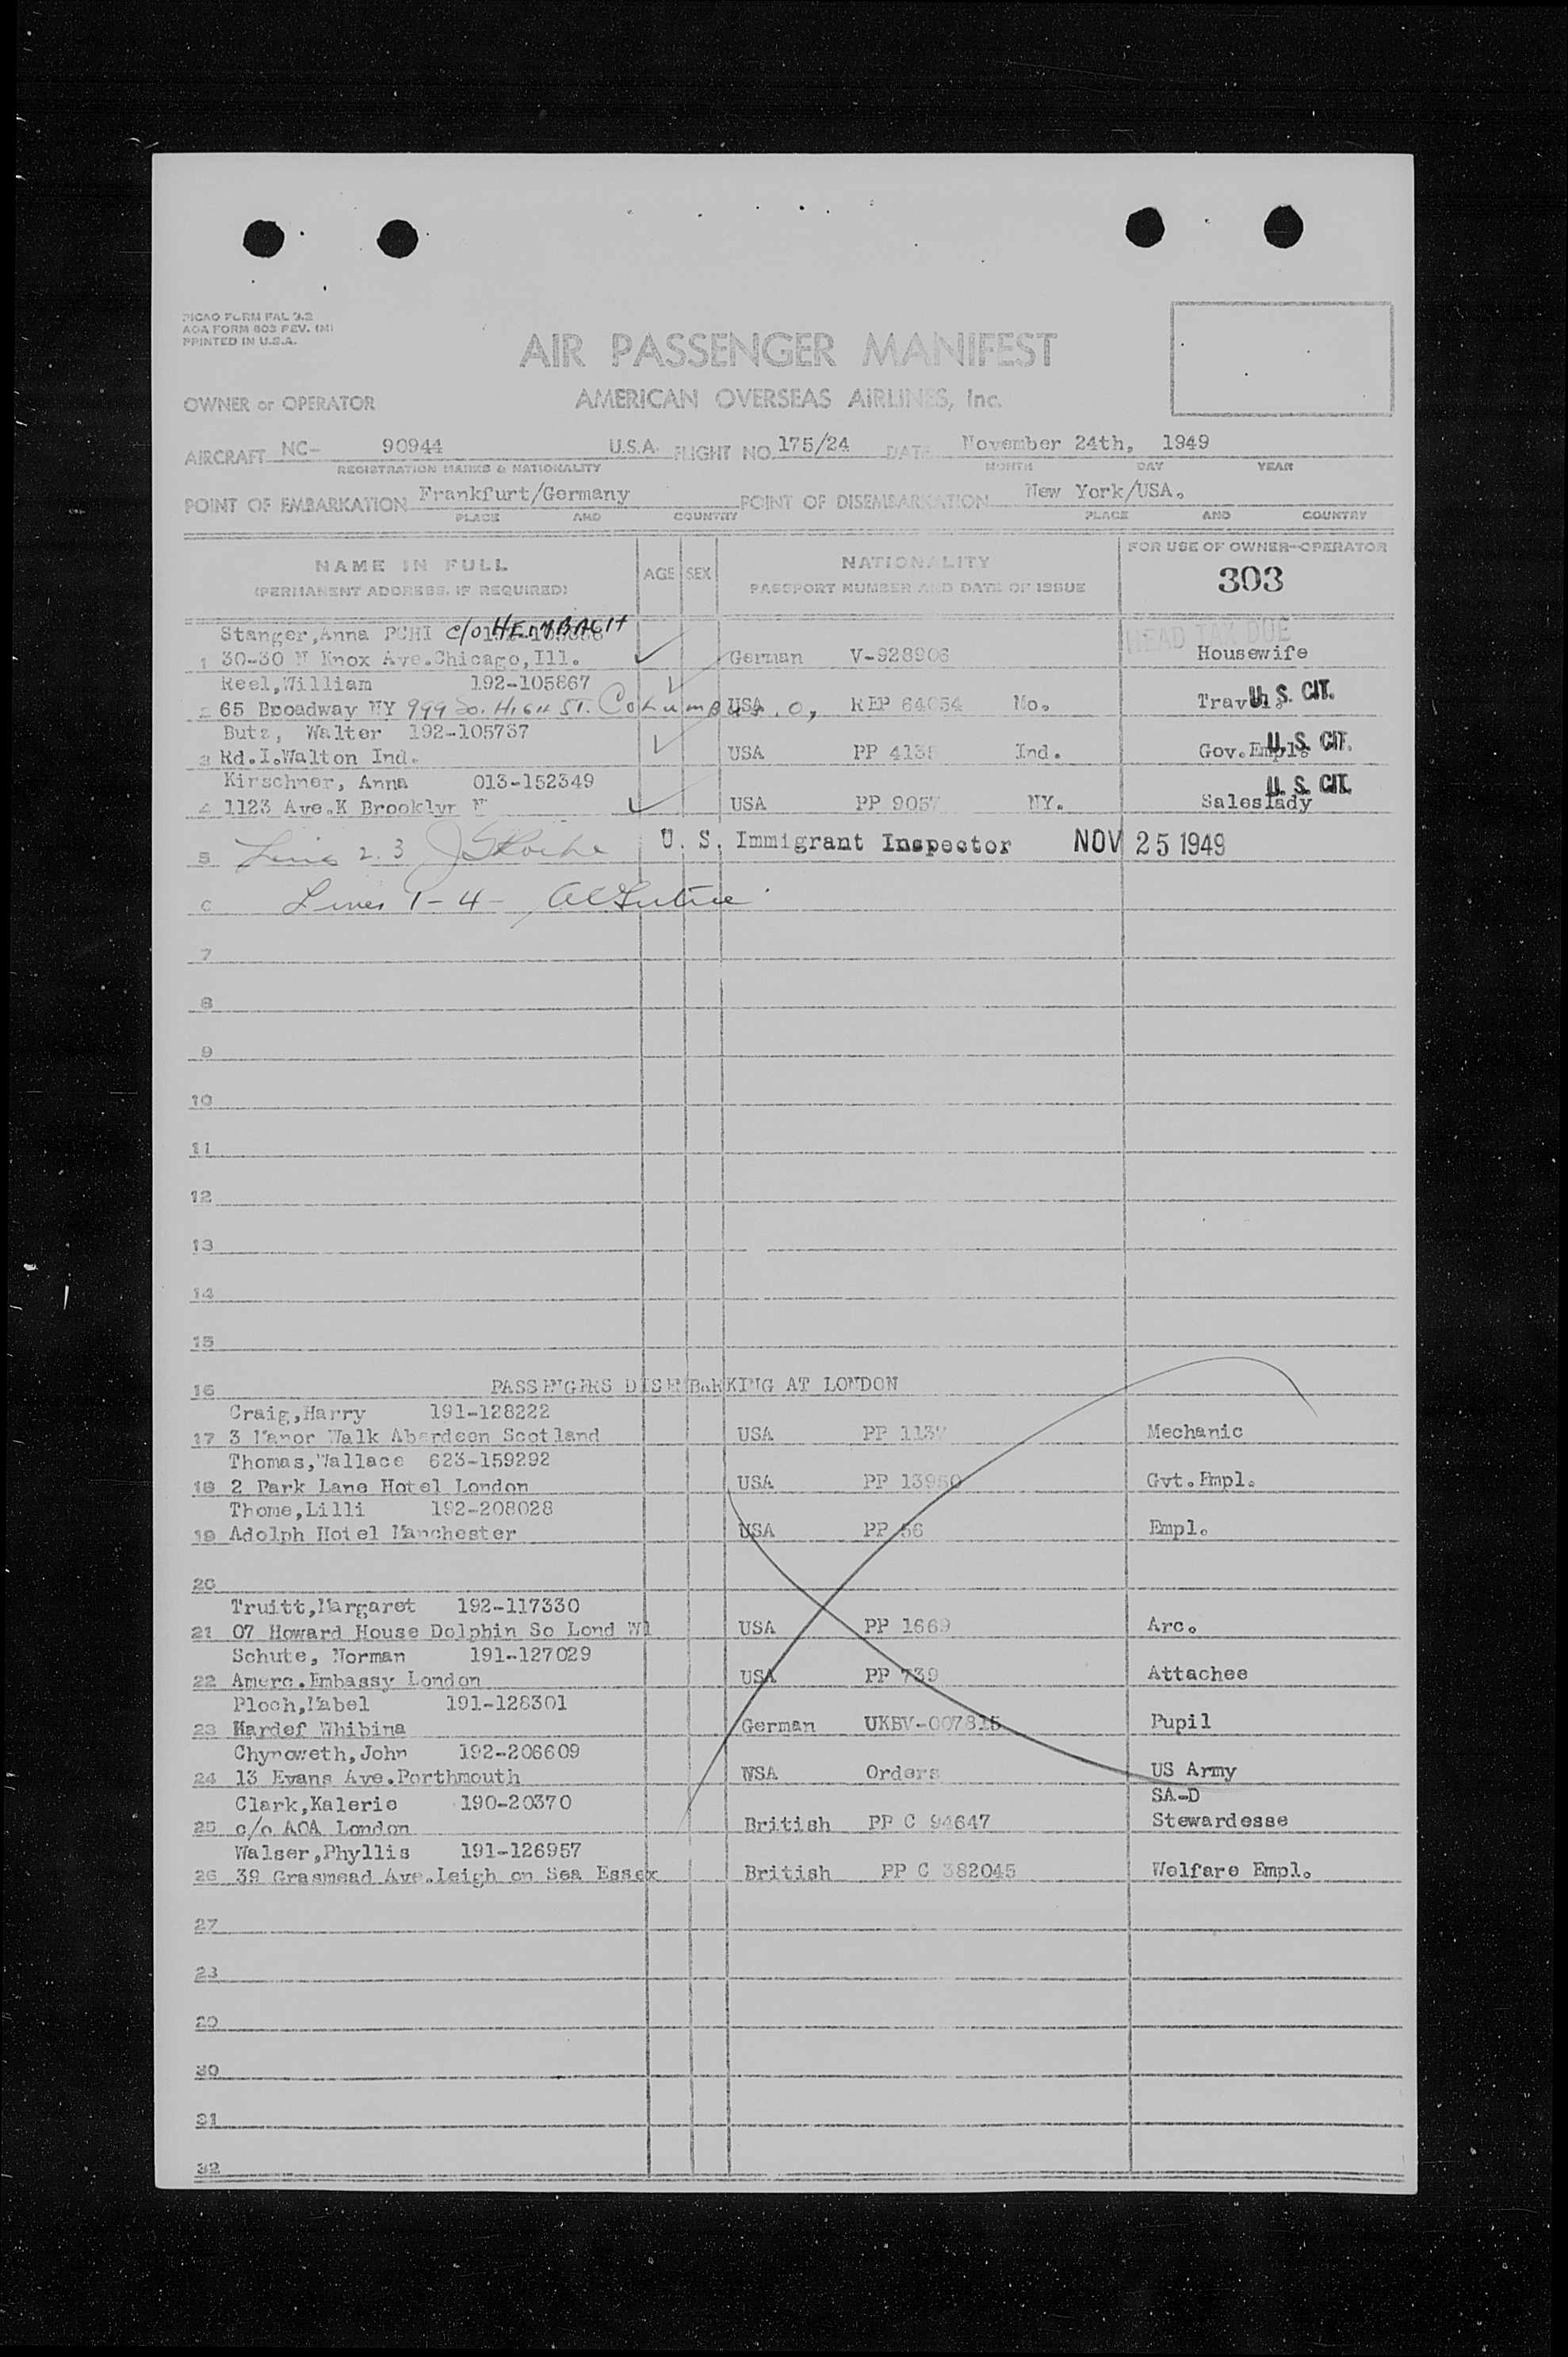 PICAO FORM PAL 3.2
AOA FORM 603 REV. (M)
PRINTED IN U.S.A.
AIR PASSENGER MANIFEST
OWNER or OPERATOR AMERICAN OVERSEAS AIRLINES, Inc.
AIRCRAFT NC- 90944 U.S.A. FLIGHT NO. 175/24 DATE November 24th, 1949
REGISTRATION MARKS & NATIONALITY MONTH DAY YEAR
POINT OF EMBARKATION Frankfurt/Germany POINT OF DISEMBARKATION New York/USA.
PLACE AND COUNTRY PLACE AND COUNTRY
NAME IN FULL AGE SEX NATIONALITY FOR USE OF OWNER-OPERATOR
(PERMANENT ADDRESS, IF REQUIRED) PASSPORT NUMBER AND DATE OF ISSUE 303
Stanger,Anna PCHI c/o HEADTAX DUE
1 30-30 N Knox Ave.Chicago,Ill. German V-928906 Housewife
Reel,William 192-105867
2 65 Broadway NY 999 So. HIGH ST. Columbus. O, USA REP 64054 No. Trav U. S. CIT.
Butz, Walter 192-105737
3 Rd.I.Walton Ind. USA PP 4138 Ind. Gov.Empl. U. S. CIT.
Kirschner, Anna 013-152349
4 1123 Ave.K Brooklyn N USA PP 9057 NY. Saleslady U. S. CIT.
5 Lines 2. 3 U. S. Immigrant Inspector NOV 25 1949
6 Lines 1-4-
7
8
9
10
11
12
13
14
15
16 PASSENGERS DISEMBARKING AT LONDON
Craig,Harry 191-128222
17 3 Manor Walk Aberdeen Scotland USA PP 1137 Mechanic
Thomas,Wallace 623-159292
18 2 Park Lane Hotel London USA PP 13950 Gvt.Empl.
Thome,Lilli 192-208028
19 Adolph Hotel Manchester USA PP 56 Empl.
20
Truitt,Margaret 192-117330
21 07 Howard House Dolphin So Lond W1 USA PP 1669 Arc.
Schute, Norman 191-127029
22 Amerc.Embassy London USA PP 739 Attachee
Ploch,Mabel 191-128301
23 Hardef Whibina German UKBV-007815 Pupil
Chynoweth,John 192-206609
24 13 Evans Ave.Porthmouth WSA Orders US Army
Clark,Kalerie 190-20370 SA-D
25 c/o AOA London British PP C 94647 Stewardesse
Walser,Phyllis 191-126957
26 39 Grasmead Ave.Leigh on Sea Essex British PP C 382045 Welfare Empl.
27
28
29
30
31
32